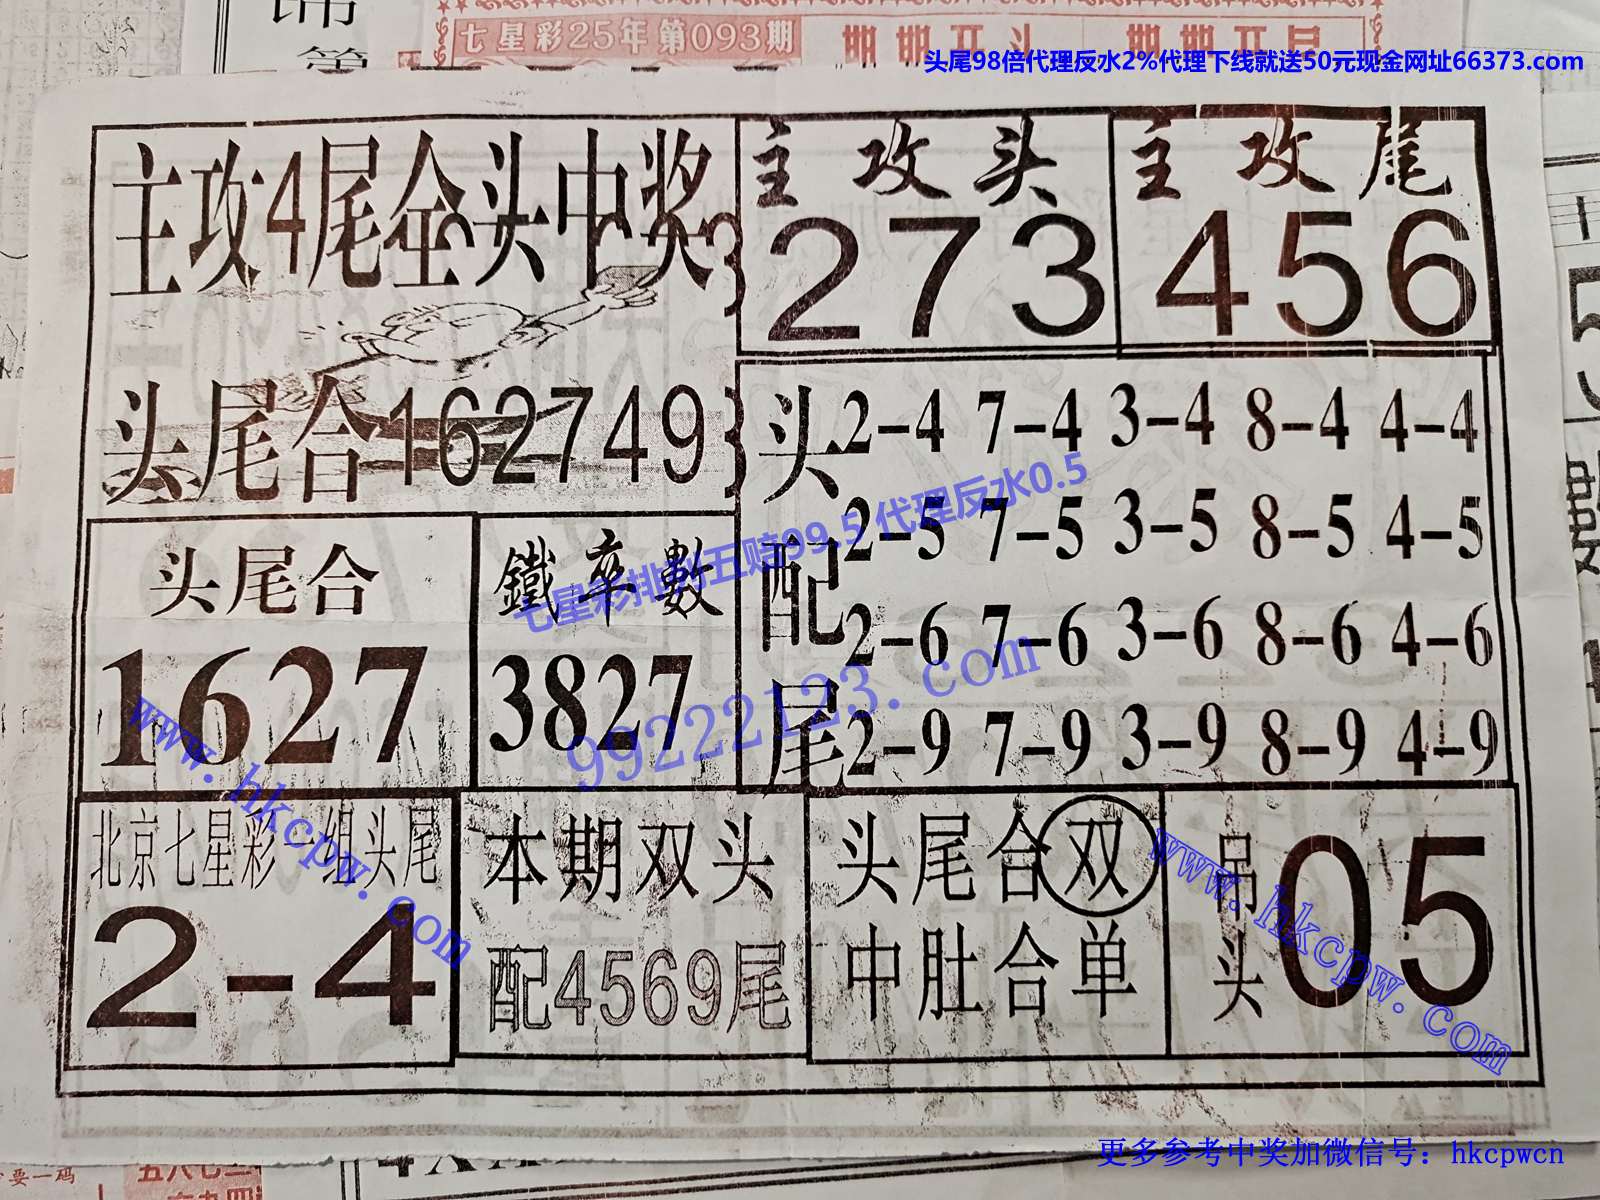 七星彩25年第093期
头尾98倍代理反水2%代理下线就送50元现金网址66373.com
主攻4尾全头中奖
主攻头
273
主攻尾
456
头尾合162749
头配尾
2-4 7-4 3-4 8-4 4-4
2-5 7-5 3-5 8-5 4-5
2-6 7-6 3-6 8-6 4-6
2-9 7-9 3-9 8-9 4-9
七星彩排列五赔99.5 代理反水0.5
头尾合
1627
鐵率數
3827
99222123.com
www.hkcpw.com
北京七星彩一组头尾
2-4
本期双头
配4569尾
头尾合双
中肚合单
吊头
05
www.hkcpw.com
更多参考中奖加微信号：hkcpwcn
要一码